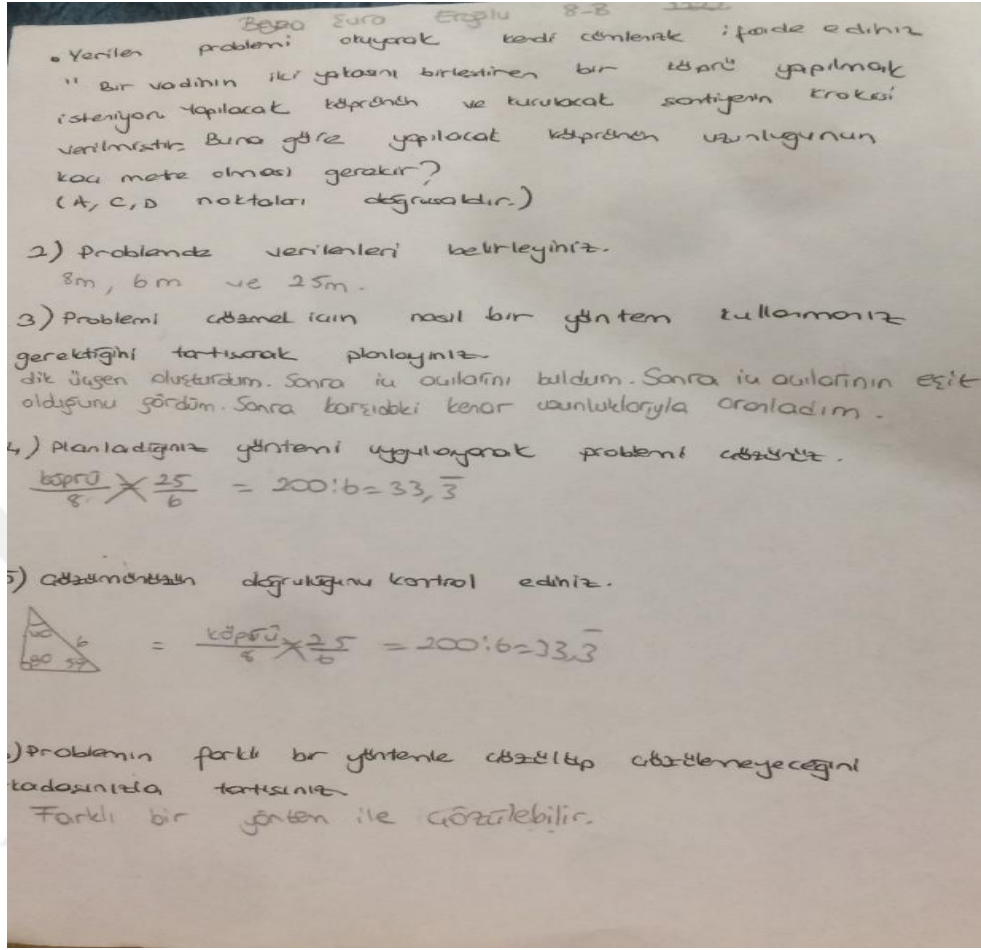 Eroglu 8-B
• Verilen problemi okuyarak kendi cümlenizle ifade ediniz
" Bir vadinin iki yakasını birleştiren bir köprü yapılmak
isteniyor. Yapılacak köprünün ve kurulacak şantiyenin krokisi
verilmiştir. Buna göre yapılacak köprünün uzunlugunun
kaç metre olması gerekir?
(A, C, D noktaları doğrusaldır.)
2) Problemde verilenleri belirleyiniz.
8m, 6m ve 25m.
3) Problemi çözmek için nasıl bir yöntem kullanmanız
gerektiğini tartışarak planlayınız.
dik üçgen oluşturdum. Sonra iç açılarını buldum. Sonra iç açılarının eşit
olduğunu gördüm. Sonra karşıdaki kenar uzunluklarıyla oranladım.
4) Planladığınız yöntemi uygulayarak problemi çözünüz.
köprü/8 × 25/6 = 200:6=33,3̅
5) Çözümünüzün doğruluğunu kontrol ediniz.
6
90
= köprü/8 × 25/6 = 200:6=33,3̅
.) Problemin farklı bir yöntemle çözülüp çözülemeyeceğini
kadaşınızla tartışınız
Farklı bir yöntem ile çözülebilir.